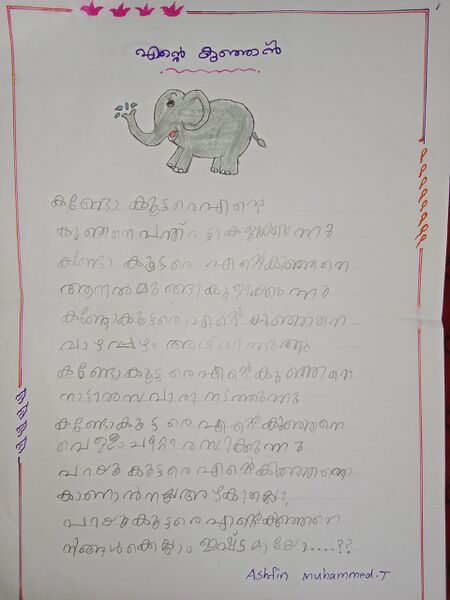 എന്റെ കുഞ്ഞൻ
കണ്ടോ കൂട്ടരെ എന്റെ
കുഞ്ഞനെ പന്ത് തട്ടി കളിക്കുന്നു
കണ്ടോ കൂട്ടരെ എന്റെ കുഞ്ഞനെ
ആറ്റിൽ മുങ്ങി കുളിക്കുന്നു
കണ്ടോ കൂട്ടരെ എന്റെ കുഞ്ഞനെ
വാഴപ്പഴം അത് തിന്നുന്നു
കണ്ടോ കൂട്ടരെ എന്റെ കുഞ്ഞനെ
നാട്ടിൽ സവാരി നടത്തുന്നു
കണ്ടോ കൂട്ടരെ എന്റെ കുഞ്ഞനെ
വെള്ളം ചീറ്റി രസിക്കുന്നു
പറയൂ കൂട്ടരെ എന്റെ കുഞ്ഞനെ
കാണാൻ നല്ല അഴകില്ലെ?
പറയൂ കൂട്ടരെ എന്റെ കുഞ്ഞനെ
നിങ്ങൾക്കെല്ലാം ഇഷ്ടമായോ....??
Ashfin muhammed.T